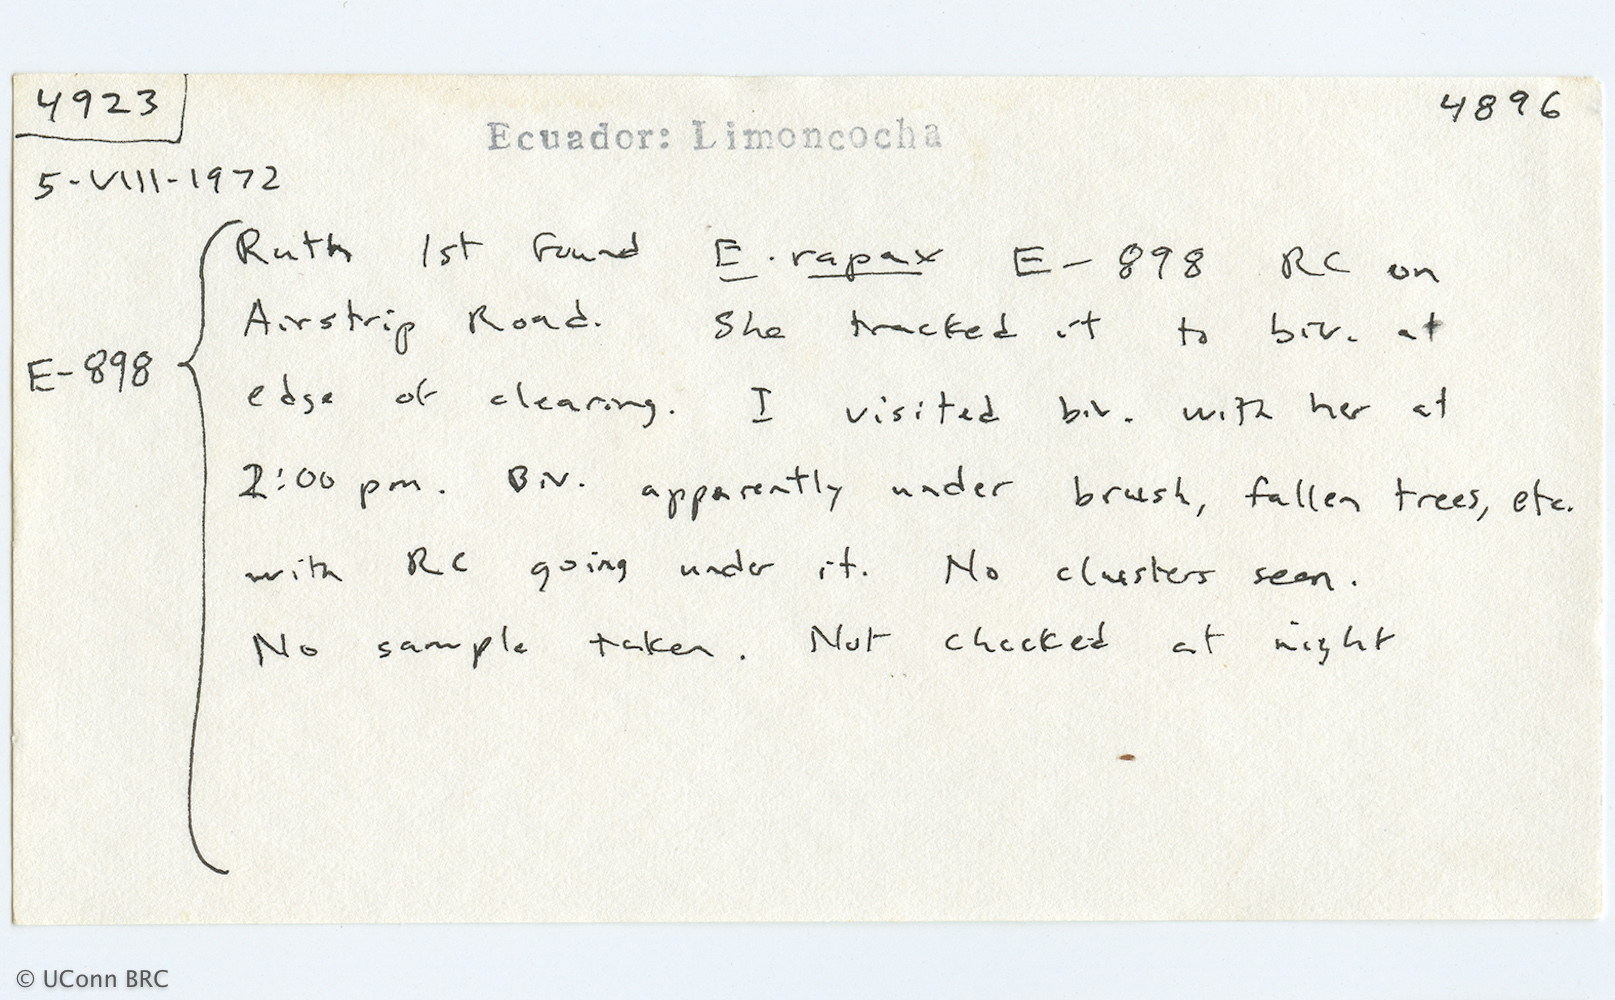 4923
4896
Ecuador: Limoncocha
5-VIII-1972
E-898
Ruth 1st found E. rapax E-898 RC on
Airstrip Road. She tracked it to biv. at
edge of clearing. I visited biv. with her at
2:00 pm. Biv. apparently under brush, fallen trees, etc.
with RC going under it. No clusters seen.
No sample taken. Not checked at night
© UConn BRC